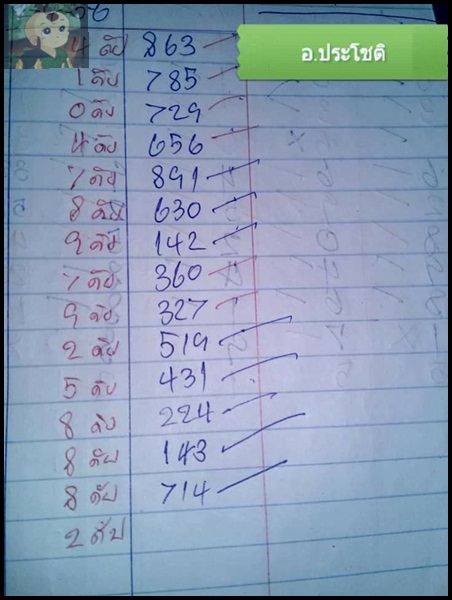 อ.ประโชติ
4 ดับ 863
1 ดับ 785
0 ดับ 729
4 ดับ 656
7 ดับ 891
8 ดับ 630
9 ดับ 142
7 ดับ 360
9 ดับ 327
2 ดับ 519
5 ดับ 431
8 ดับ 224
8 ดับ 143
8 ดับ 714
2 ดับ